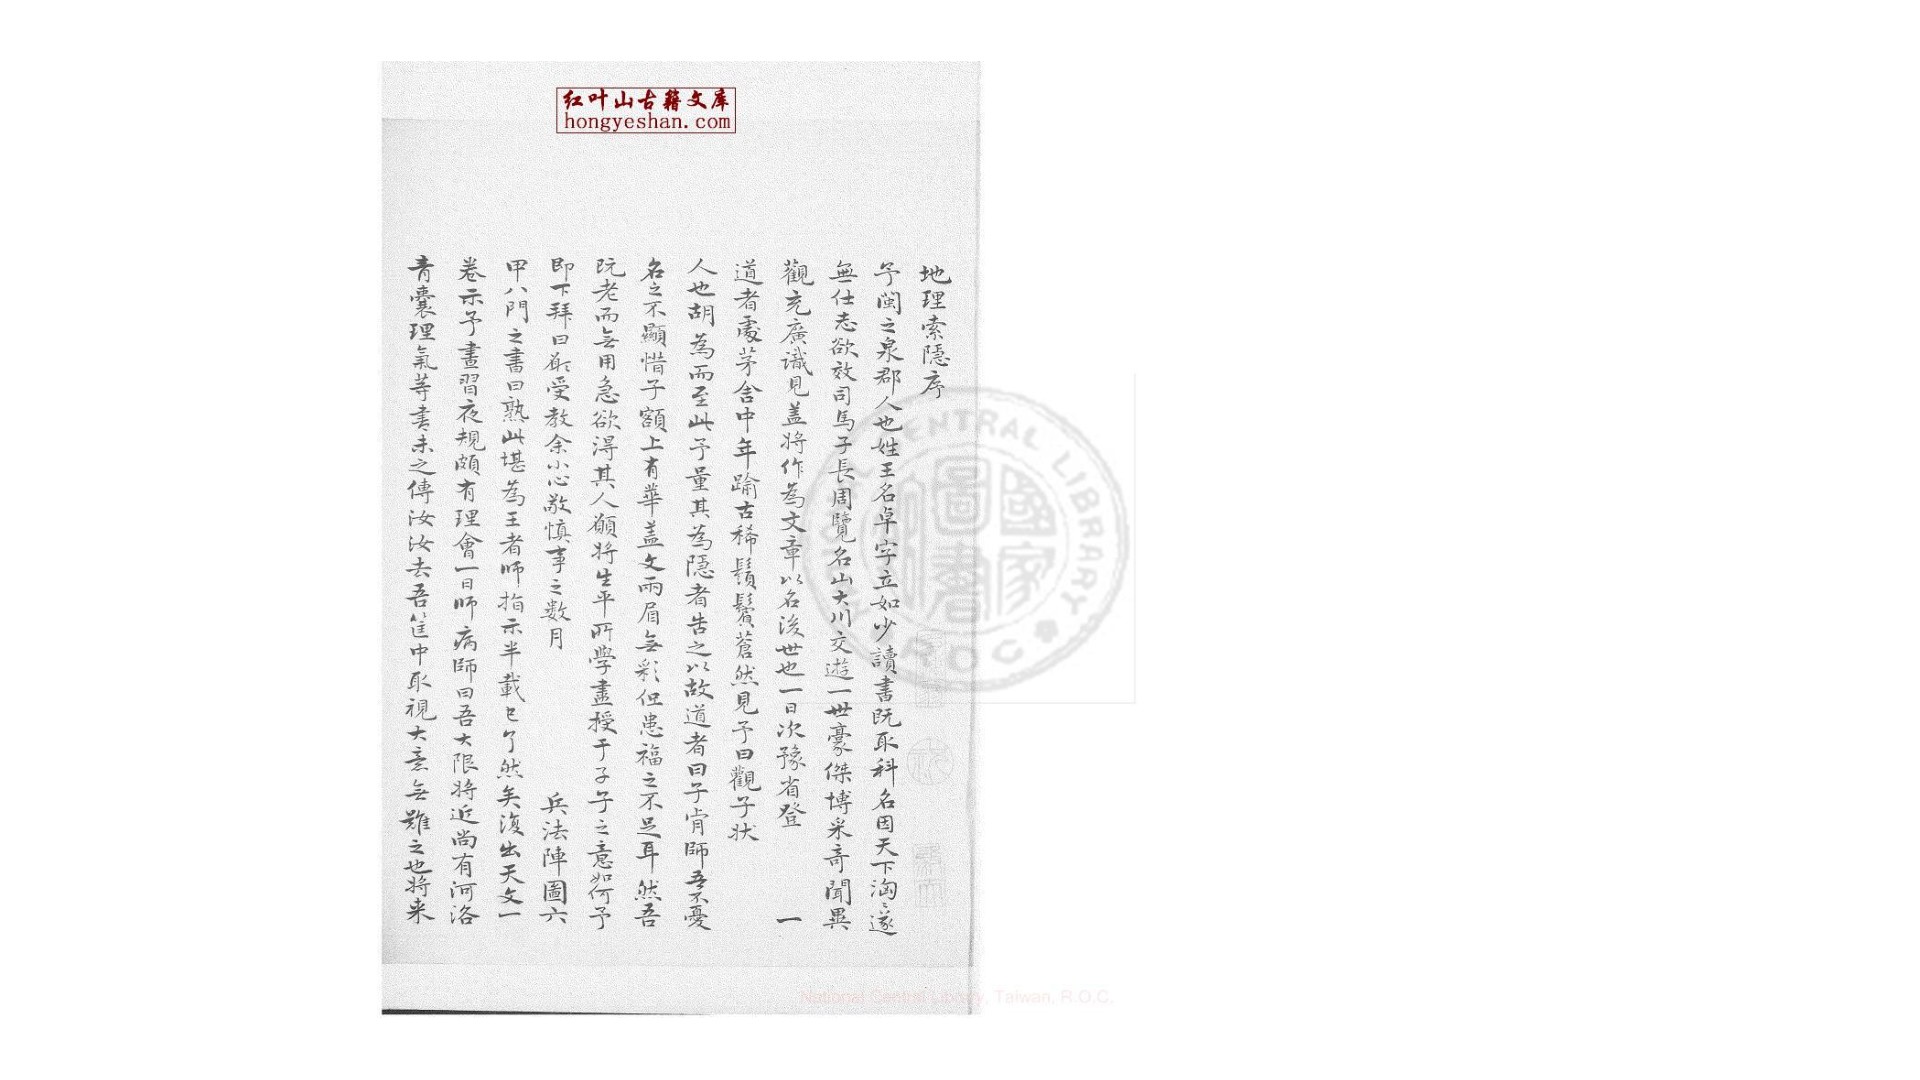 红叶山古籍文库
hongyeshan.com
地理索隱序
予閩之泉郡人也姓王名卓字立如少讀書既取科名因天下洶〻遂
無仕志欲效司馬子長周覽名山大川交遊一世豪傑博采奇聞異
觀充廣識見盖将作為文章以名後世也一日次豫省登 一
道者處茅舍中年踰古稀鬚鬢蒼然見予曰觀子状
人也胡為而至此予量其為隱者告之以故道者曰子肯師吾不憂
名之不顯惜子額上有華盖文兩眉無彩但患福之不足耳然吾
既老而無用急欲得其人願将生平所學盡授于子子之意如何予
即下拜曰願受教余小心敬慎事之数月 兵法陣圖六
甲八門之書曰熟此堪為王者師指示半載已了然矣復出天文一
卷示予晝習夜規頗有理會一日師病師曰吾大限将近尚有河洛
青囊理氣等書未之傳汝汝去吾筐中取視大意無難之也将来
NATIONAL CENTRAL LIBRARY R.O.C.
國家圖書館
National Central Library, Taiwan, R.O.C.